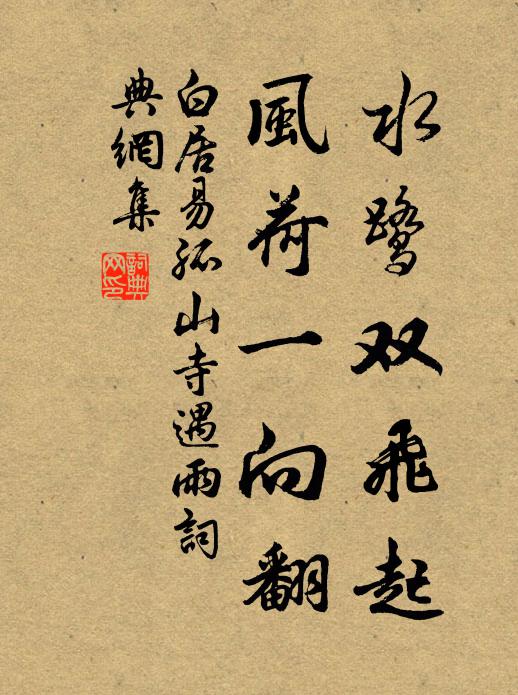 水鷺双飛起
風荷一向翻
白居易孤山寺遇雨詞
典網集
詞典
网印